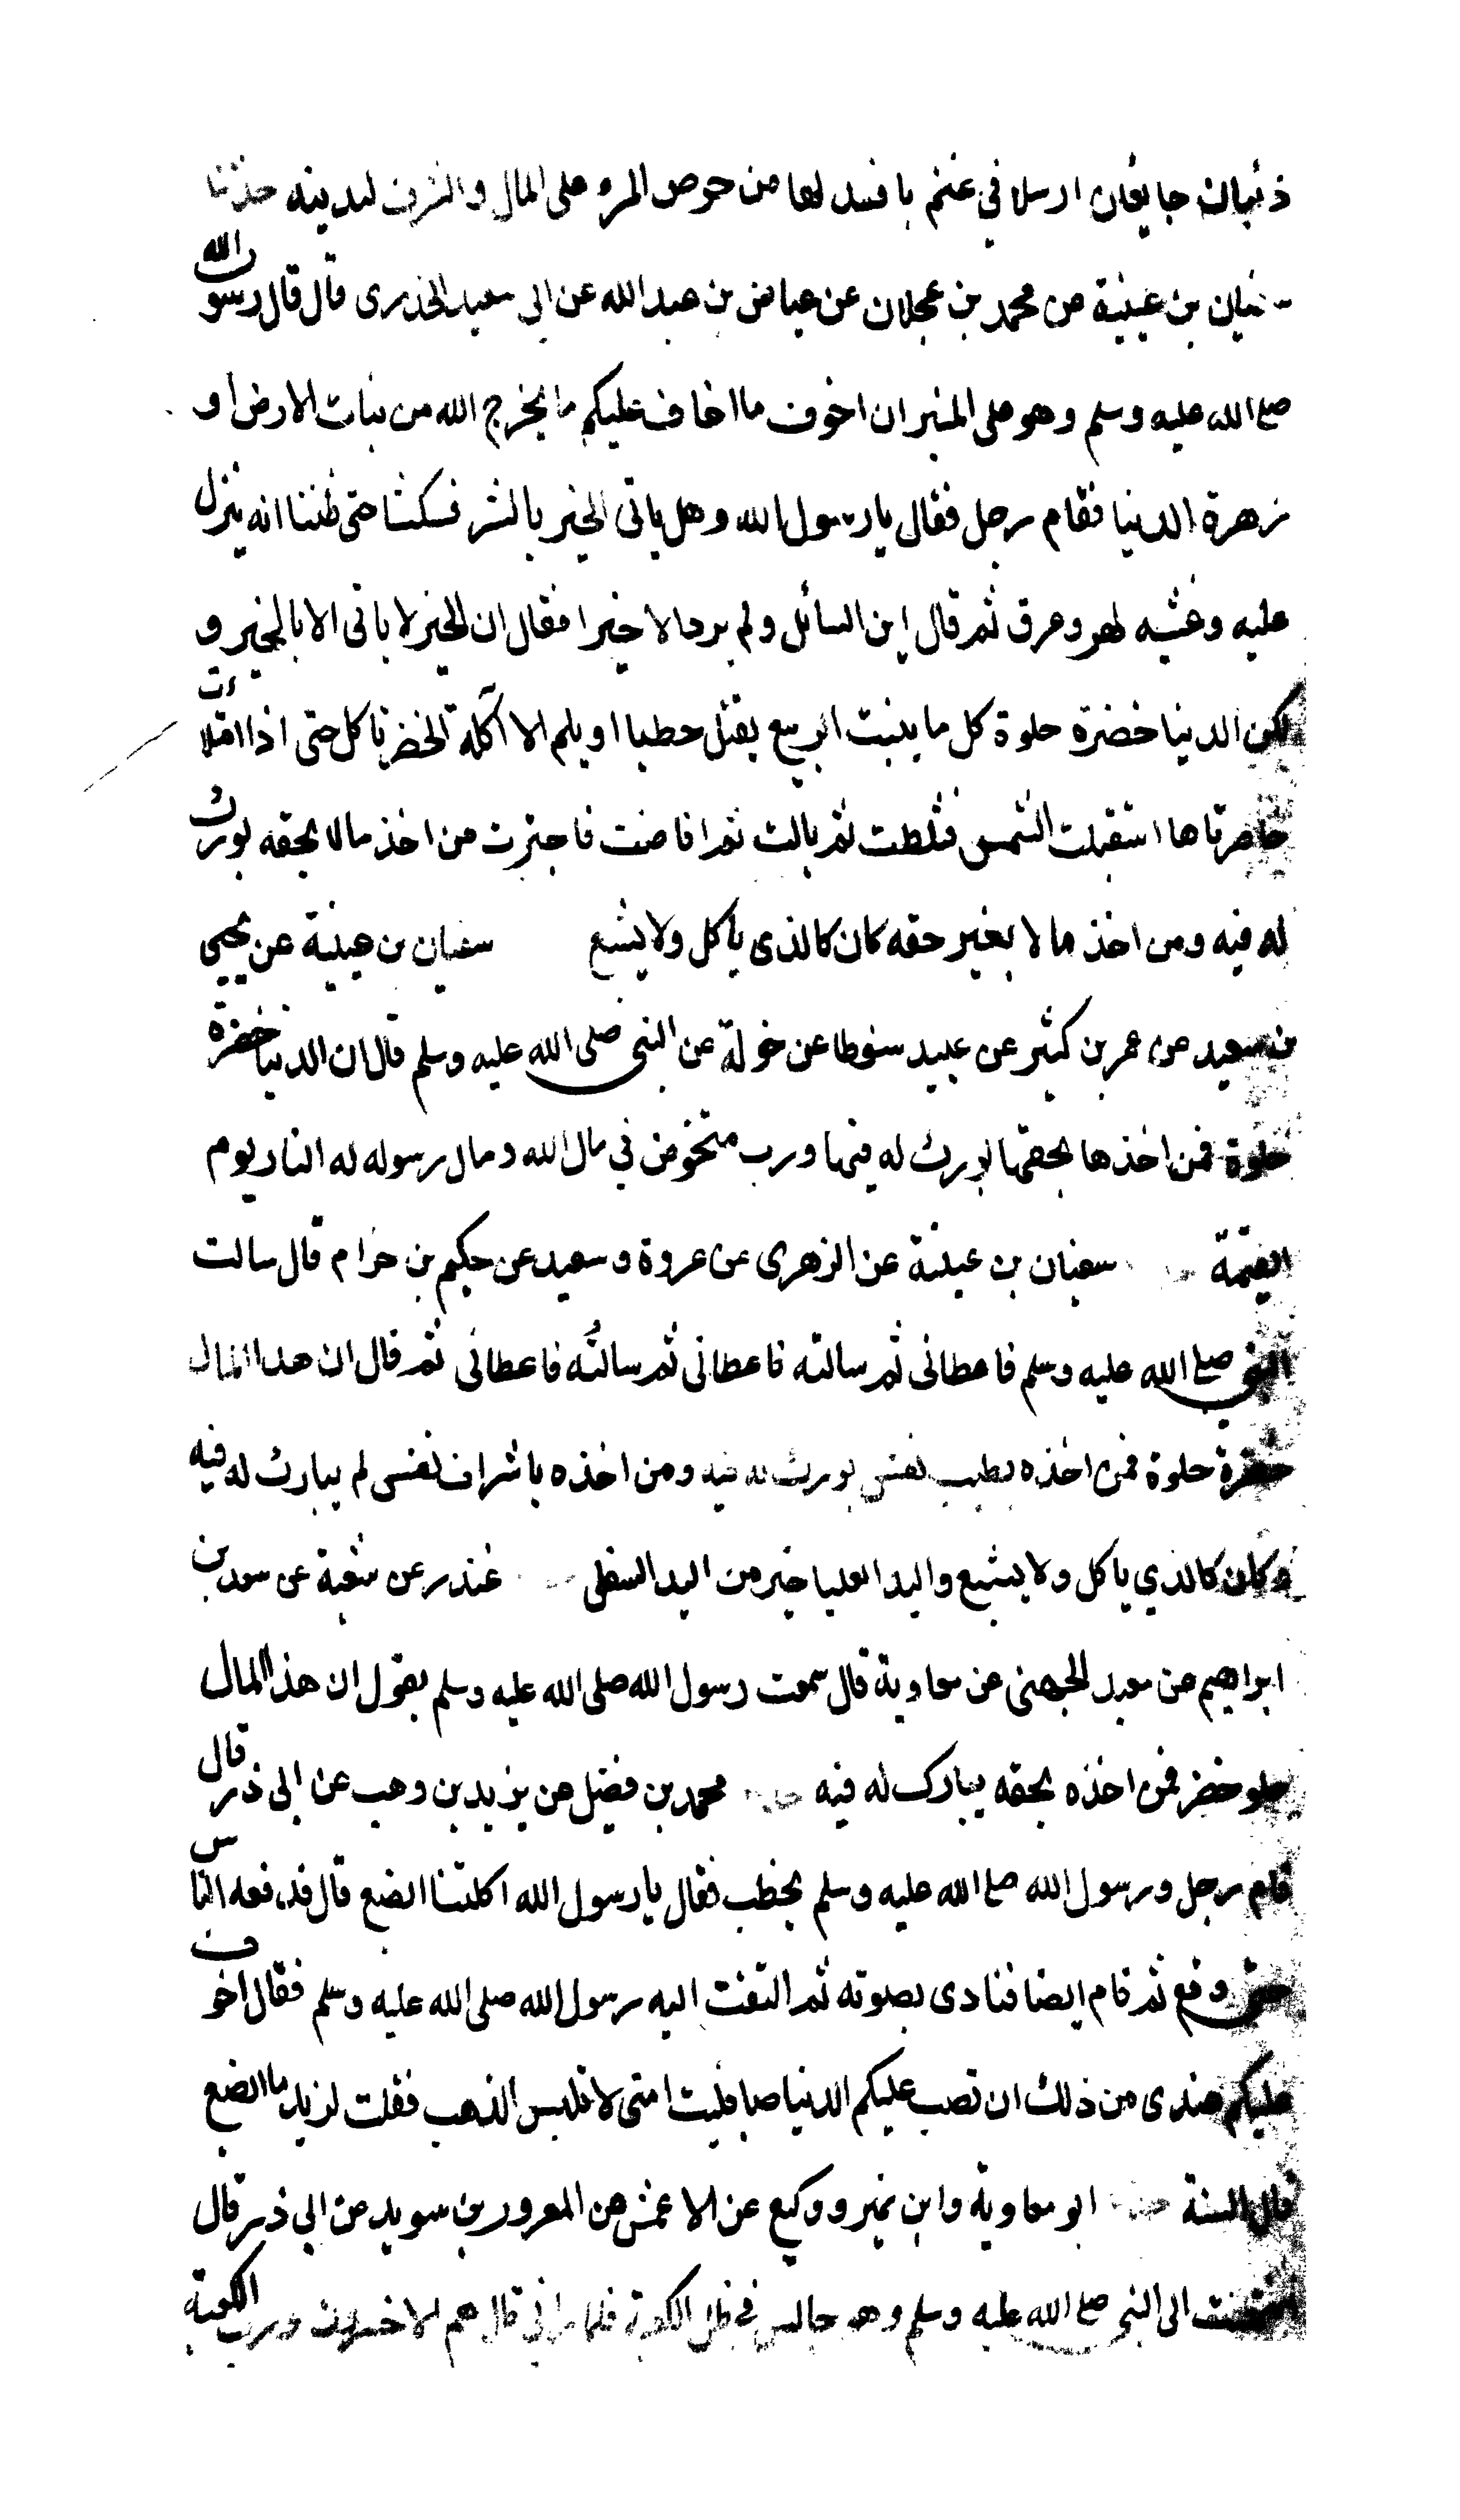 ذئبان جايعان ارسلا في غنم بافسد لها من حرص المرء على المال والشرف لدينه حدثنا
سفيان بن عيينة عن محمد بن عجلان عن عياض بن عبد الله عن ابى سعيد الخدرى قال قال رسول الله
صلى الله عليه وسلم وهو على المنبر ان اخوف ما اخاف عليكم ما يخرج الله من نبات الارض او
زهرة الدنيا فقام رجل فقال يا رسول الله وهل ياتى الخير بالشر فسكتنا حتى ظننا انه ينزل
عليه وغشيه لهر وعرق ثم قال اين السائل ولم يرد الا خيرا فقال ان الخير لا ياتى الا بالخير و
لكن الدنيا خضرة حلوة كل ما ينبت الربيع يقتل حبطا او يلم الا آكلة الخضر تاكل حتى اذا امتلات
خاصرتاها استقبلت الشمس فثلطت ثم بالت ثم افاضت فاجترت من اخذ مالا بحقه بورك
له فيه ومن اخذ مالا بغير حقه كان كالذى ياكل ولا يشبع سفيان بن عيينة عن يحيى
بن سعيد عن عمر بن كثير عن عبيد سنوطا عن خولة عن النبى صلى الله عليه وسلم قال ان الدنيا خضرة
حلوة فمن اخذها بحقها بورك له فيها ورب متخوض في مال الله ومال رسوله له النار يوم
القيمة سفيان بن عيينة عن الزهرى عن عروة وسعيد عن حكيم بن حزام قال سالت
النبى صلى الله عليه وسلم فاعطانى ثم سالته فاعطانى ثم سالته فاعطانى ثم قال ان هذا المال
خضرة حلوة فمن اخذه بطيب نفس بورك له فيه ومن اخذه باشراف نفس لم يبارك له فيه
وكان كالذي ياكل ولا يشبع واليد العليا خير من اليد السفلى غندر عن شعبة عن سعد بن
ابراهيم عن معبد الجهنى عن معاوية قال سمعت رسول الله صلى الله عليه وسلم يقول ان هذا المال
حلو خضر فمن اخذه بحقه يبارك له فيه محمد بن فضيل عن يزيد بن وهب عن ابى ذر قال
قام رجل ورسول الله صلى الله عليه وسلم يخطب فقال يا رسول الله اكلتنا الضبع قال فدفعه الناس
حتى وقع ثم قام ايضا فنادى بصوته ثم التفت اليه رسول الله صلى الله عليه وسلم فقال اخوف
عليكم عندى من ذلك ان تصب عليكم الدنيا صبا فليت امتى لا تلبس الذهب فقلت لزيد ما الضبع
قال السنة ابو معاوية وابن نمير ووكيع عن الاعمش عن المعرور بن سويد عن ابي ذر قال
انتهيت الى النبى صلى الله عليه وسلم وهو جالس في ظل الكعبة فلما رانى قال هم الاخسرون ورب الكعبة